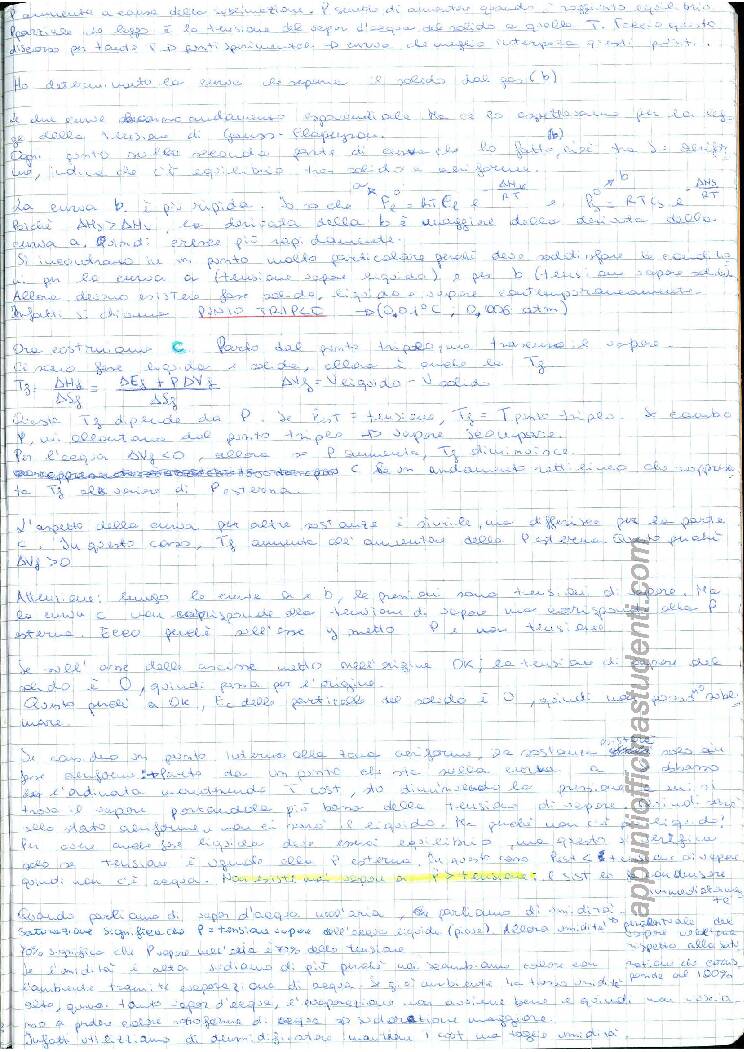 P aumenta a causa della sublimazione. P smette di aumentare quando è raggiunto equilibrio
che leggo è la tensione del vapor d'acqua del solido a quella T. Faccio questo
discorso per tante T → punti sperimentali → curva che meglio interpola questi punti.
Ho determinato la curva che separa il solido dal gas (b)
Le due curve hanno andamento esponenziale. Ma ce lo aspettavamo per la
della tensione di
Ogni punto sulla seconda parte di curva che ho fatto, cioè tra S e
indica che c'è equilibrio tra solido e aeriforme.
La curva b è più ripida. Io so che
Poiché ΔHs > ΔHe, la derivata della b è maggiore della derivata della
curva a. Quindi cresce più rapidamente.
Si incontrano in un punto molto particolare perché deve soddisfare le condizio
ni per la curva a (tensione vapore liquido) e per b (tensione vapore solido)
Allora devono esistere fase solida, liquida e vapore contemporaneamente.
Infatti si chiama PUNTO TRIPLO → (0,01°C, 0,006 atm)
Ora costruiamo C. Parto dal punto triplo, ma tralascio il vapore.
Ci sarà fase liquida e solida, allora è anche la Tf
Tf = ΔHf / ΔSf = ΔEf + PΔVf / ΔSf ΔVf = V liquido - V solido
Questa Tf dipende da P. Se Pest = tensione, Tf = T punto triplo. Se cambio
P, mi allontano dal punto triplo → vapore scompare.
Per l'acqua ΔVf < 0, allora se P aumenta, Tf diminuisce.
C ha un andamento rettilineo che rappresen
ta Tf al variare di P esterna.
L'aspetto della curva per altre sostanze è simile, ma differisce per la parte
c. In questo caso, Tf aumenta all'aumentare della P esterna. Questo perché
ΔVf > 0
Attenzione: lungo le curve a e b, le pressioni sono tensioni di vapore. Ma
la curva c non corrisponde alla tensione di vapore ma corrisponde alla P
esterna. Ecco perché sull'asse y metto P e non tensione
Se sull'asse delle ascisse metto nell'origine 0K, la tensione di vapore del
solido è 0, quindi passa per l'origine.
Questo perché a 0K, Ec delle particelle del solido è 0, quindi non possono subli
mare.
Se considero un punto interno alla zona aeriforme, la sostanza esisterà solo in
fase aeriforme. Parto da un punto che sta sulla curva a e abbasso
l'ordinata mantenendo T cost, sto diminuendo la pressione a cui si
trova il vapore portandola più bassa della tensione di vapore. Quindi sarà
allo stato aeriforme e non ci sarà il liquido. Ma perché non c'è più liquido?
Per avere anche fase liquida deve esserci equilibrio, ma questo si verifica
solo se tensione è uguale alla P esterna. In questo caso Pest < tensione di vapore
quindi non c'è acqua. Non esiste mai vapore a P > tensione: il sist lo fa condensare
immediatamen
te!
Quando parliamo di vapor d'acqua nell'aria, parliamo di umidità
Saturazione significa che P = tensione vapore dell'acqua liquida (piove). Allora umidità
percentuale del
vapore nell'aria
rispetto alla satu
razione che corris
ponde al 100%
70% significa che P vapore nell'aria è 70% della tensione
Se l'umidità è alta sudiamo di più perché noi scambiamo calore con
l'ambiente tramite evaporazione di acqua. Se l'ambiente ha troppa umidità
tanto vapor d'acqua, l'evaporazione non avviene bene e quindi non
a perdere calore sotto forma di acqua → sudorazione maggiore.
Infatti utilizziamo il deumidificatore: mantiene T cost ma toglie umidità.
appuntiofficinastudenti.com